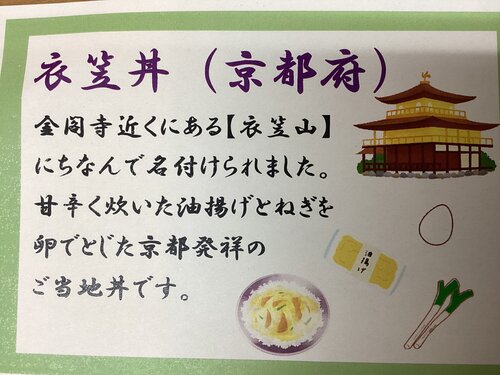 衣笠丼（京都府）
金閣寺近くにある【衣笠山】
にちなんで名付けられました。
甘辛く炊いた油揚げとねぎを
卵でとじた京都発祥の
ご当地丼です。
油揚げ